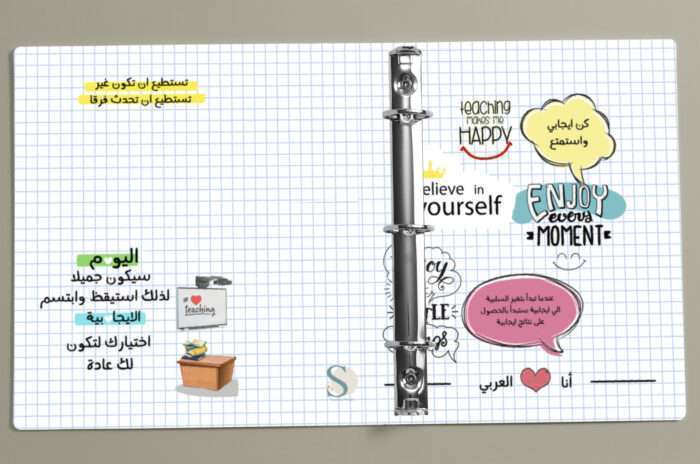 تستطيع ان تكون غير
تستطيع ان تحدث فرقا
اليوم
سيكون جميلا
لذلك استيقظ وابتسم
الايجابية
اختيارك لتكون
لك عادة
#
teaching
S
teaching
makes me
HAPPY
كن ايجابي
واستمتع
elieve in
yourself
ENJOY
every
MOMENT
عندما تبدأ بتغير السلبية
الي ايجابية ستبدأ بالحصول
على نتائج ايجابية
أنا العربي